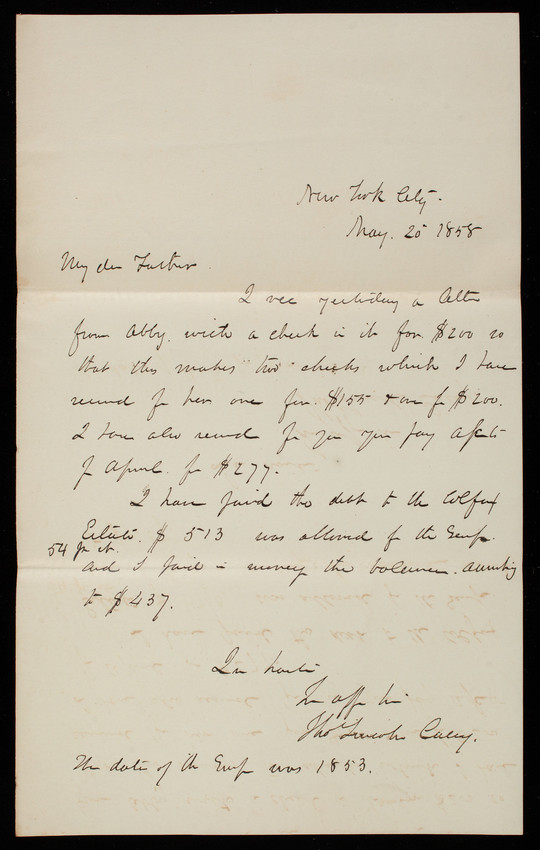 New York City.
May. 25 1858
My dear Father.
I rec yesterday a letter
from Abby. with a check in it for $200 so
that this makes two checks which I have
received from her one for. $155 & one for $200.
I have also received from you your pay accts
for April. for $277.
I have paid the debt to the Colfax
Estate. $ 513 was allowed for the
54 for it.
and I paid in money the balance. amounting
to $437.
In haste
Yr aff
Thos Lincoln Casey.
The date of the was 1853.